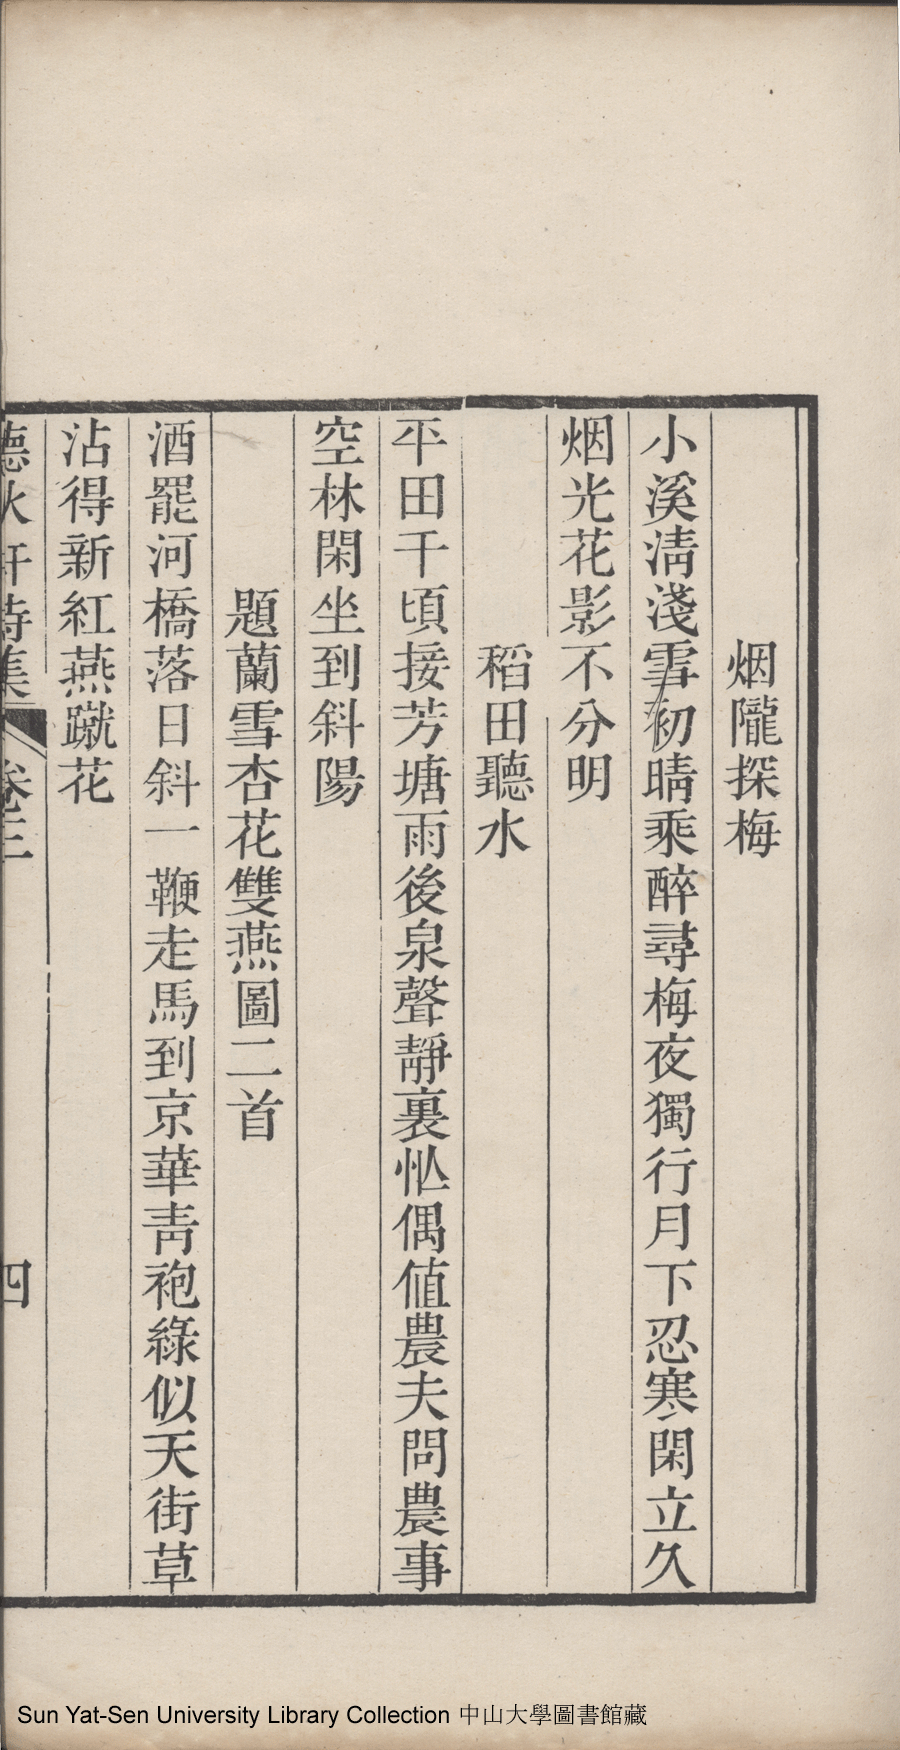 烟隴探梅
小溪淸淺雪初晴乘醉尋梅夜獨行月下忍寒閑立久
烟光花影不分明
稻田聽水
平田千頃接芳塘雨後泉聲靜裏忙偶值農夫問農事
空林閑坐到斜陽
題蘭雪杏花雙燕圖二首
酒罷河橋落日斜一鞭走馬到京華靑袍綠似天街草
沾得新紅燕蹴花
聽秋軒詩集 卷三 四
Sun Yat-Sen University Library Collection 中山大學圖書館藏